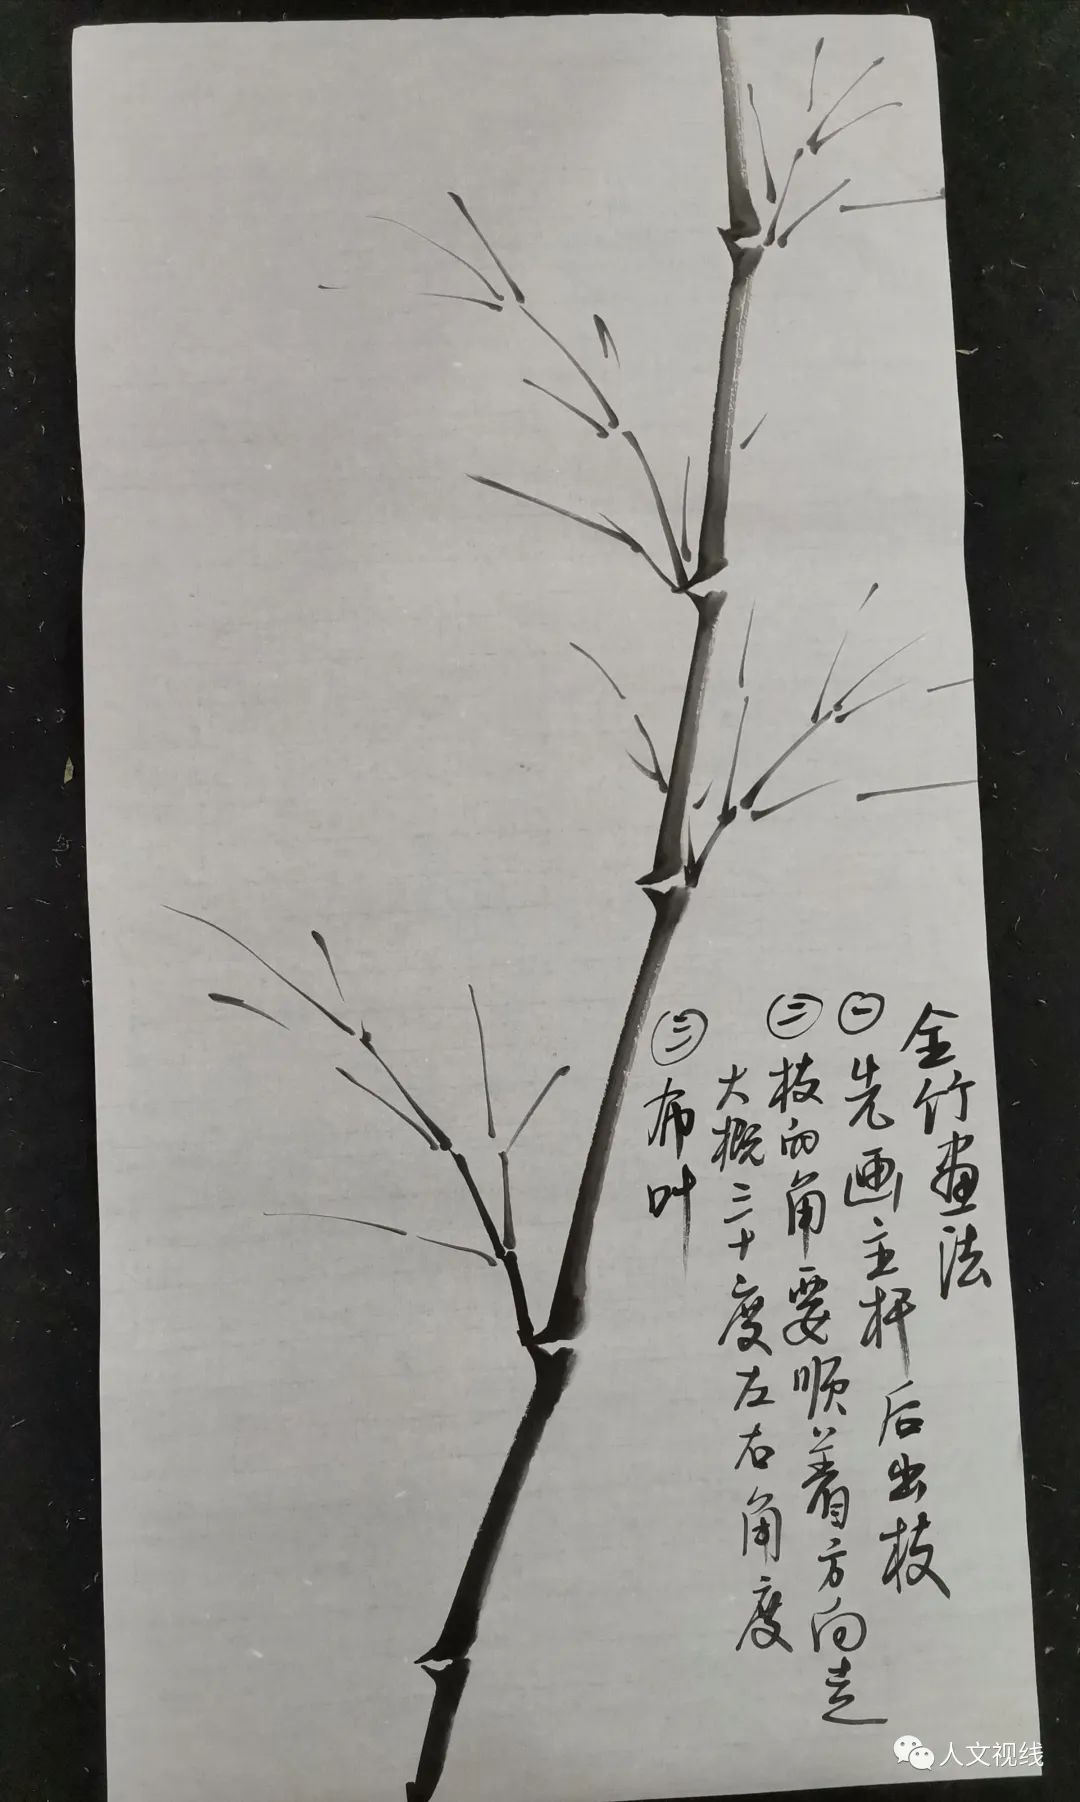 金竹畫法
㊀先画主杆后出枝
㊁枝的角要顺着方向走
大概三十度左右角度
㊂布叶
人文视线